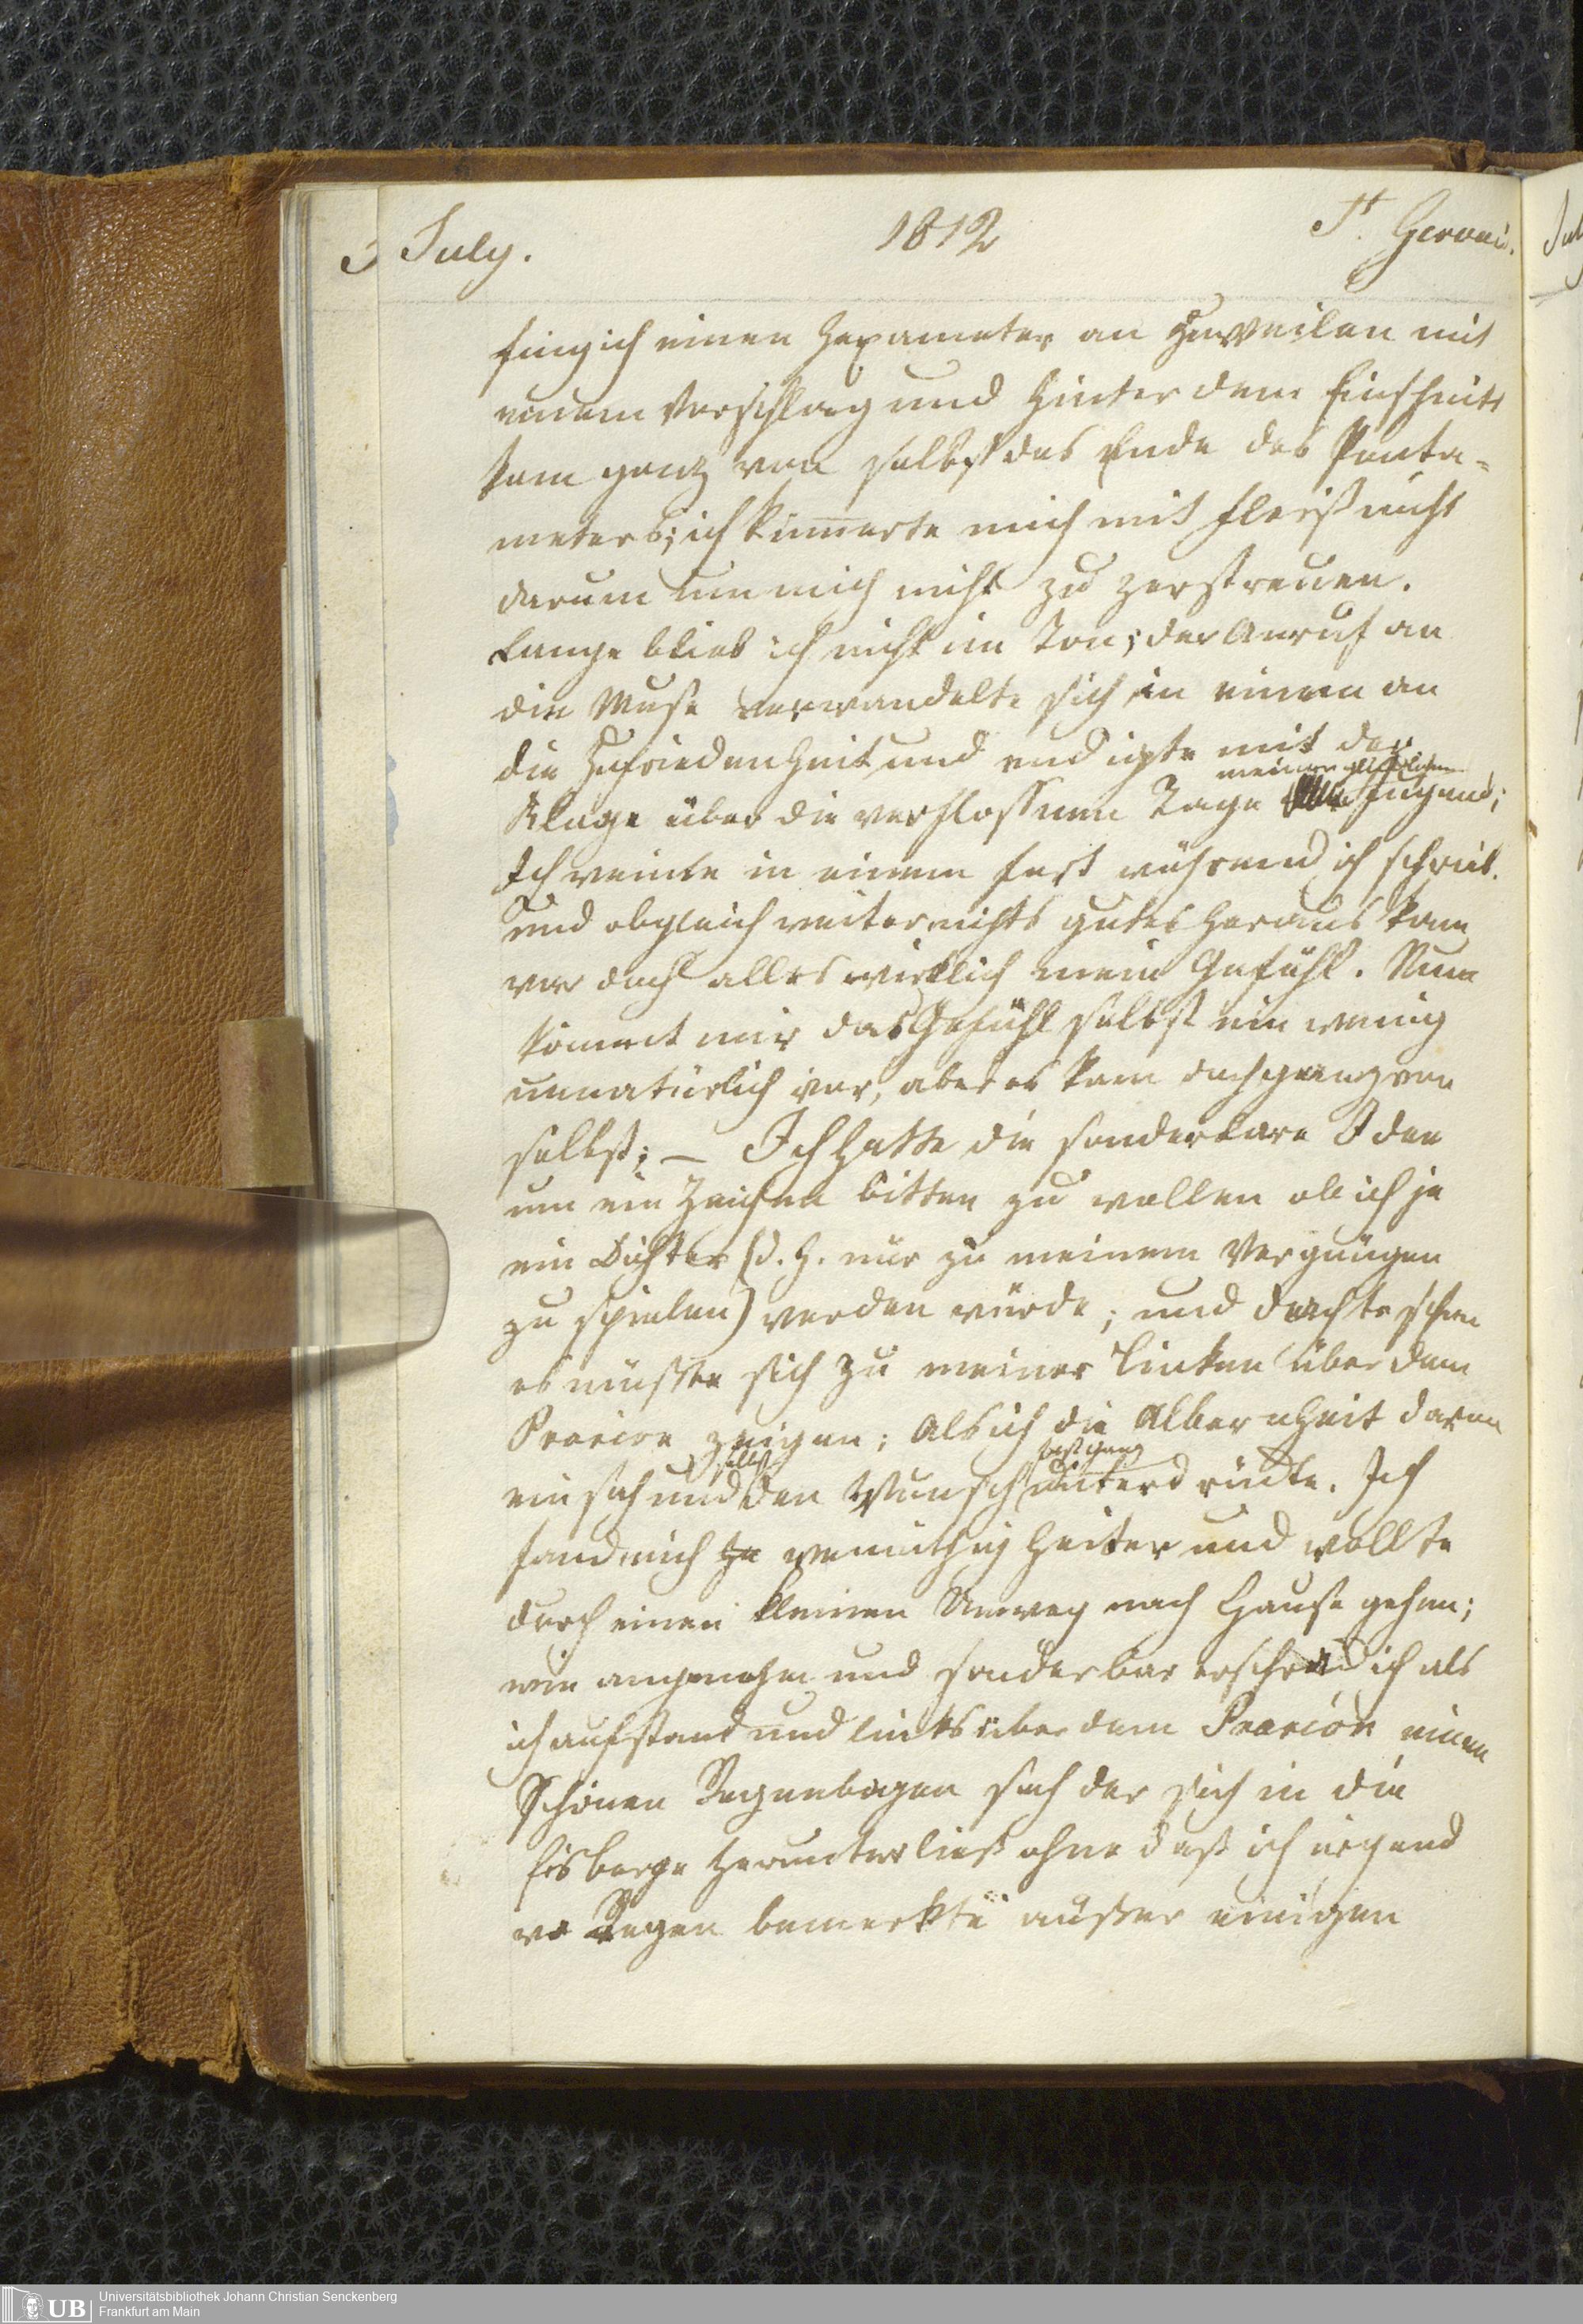 3 July.
1812
St. Gervais.
fing ich einen Hexameter an zuweilen mit
einem Vorschlag und hinter dem Einschnitt
kam ganz von selbst das Ende des Penta-
meters; ich kümerte mich mit Fleiß nicht
darum um mich nicht zu zerstreuen.
Lange blieb ich nicht im Ton; der Anruf an
die Muse verwandelte sich in einem an
die Zufriedenheit und endigte mit der
meiner glücklichen
Klage über die verfloßnen Tage Jugend;
Ich weinte in einem fort während ich schrieb.
und obgleich weiter nichts gutes heraus kam
war doch alles wirklich mein Gefühl. Nun
kömmt mir das Gefühl selbst ein wenig
unnatürlich vor, aber es kam doch ganz von
selbst; – Ich hatte die sonderbare Idee
um ein Zeichen bitten zu wollen ob ich je
ein Dichter (d. h. nur zu meinem Vergnügen
zu spielen) werden würde; und dachte schon
es müßte sich zu meiner Linken über dem
Prarion zeigen; Als ich die Albernheit davon
selbst
fast ganz
einsah und den Wunsch unterdrückte. Ich
fand mich wemüthig heiter und wollte
durch einen kleinen Umweg nach Hause gehen;
wie angenehm und sonderbar erschrack ich als
ich aufstand und links über dem Prarion einen
Schönen Regenbogen sah der sich in die
Eisberge herunterließ ohne daß ich irgend
wo Regen bemerkte außer einigen
Jul
UB
Universitätsbibliothek Johann Christian Senckenberg
Frankfurt am Main